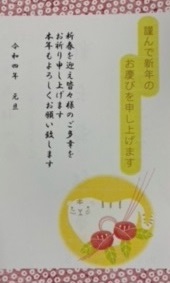 謹んで新年の
お慶びを申し上げます
新春を迎え皆々様のご多幸を
お祈り申し上げます
本年もよろしくお願い致します
令和四年 元旦